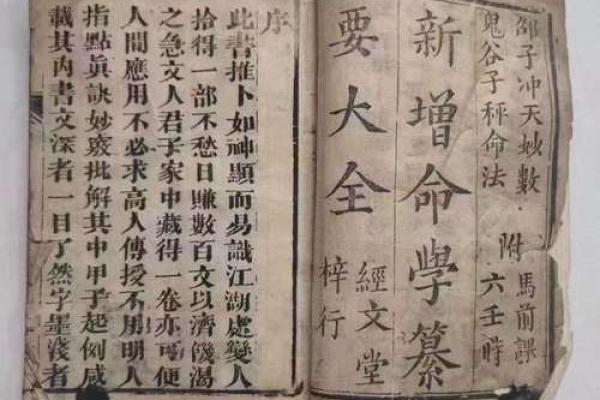 邵子冲天妙數
鬼谷子秤命法
附
馬前課
六壬時
新增命學纂
要大全
經文堂
梓行
序
此書推卜如神顯而易識江湖處變人
拾得一部不愁日賺數百文以濟饑渴
之急文人君子家中藏得一卷亦可便
人間應用不必求高人傳授不用明人
指點眞訣妙竅批解其中甲子起例咸
載其內書文深者一目了然字墨淺者